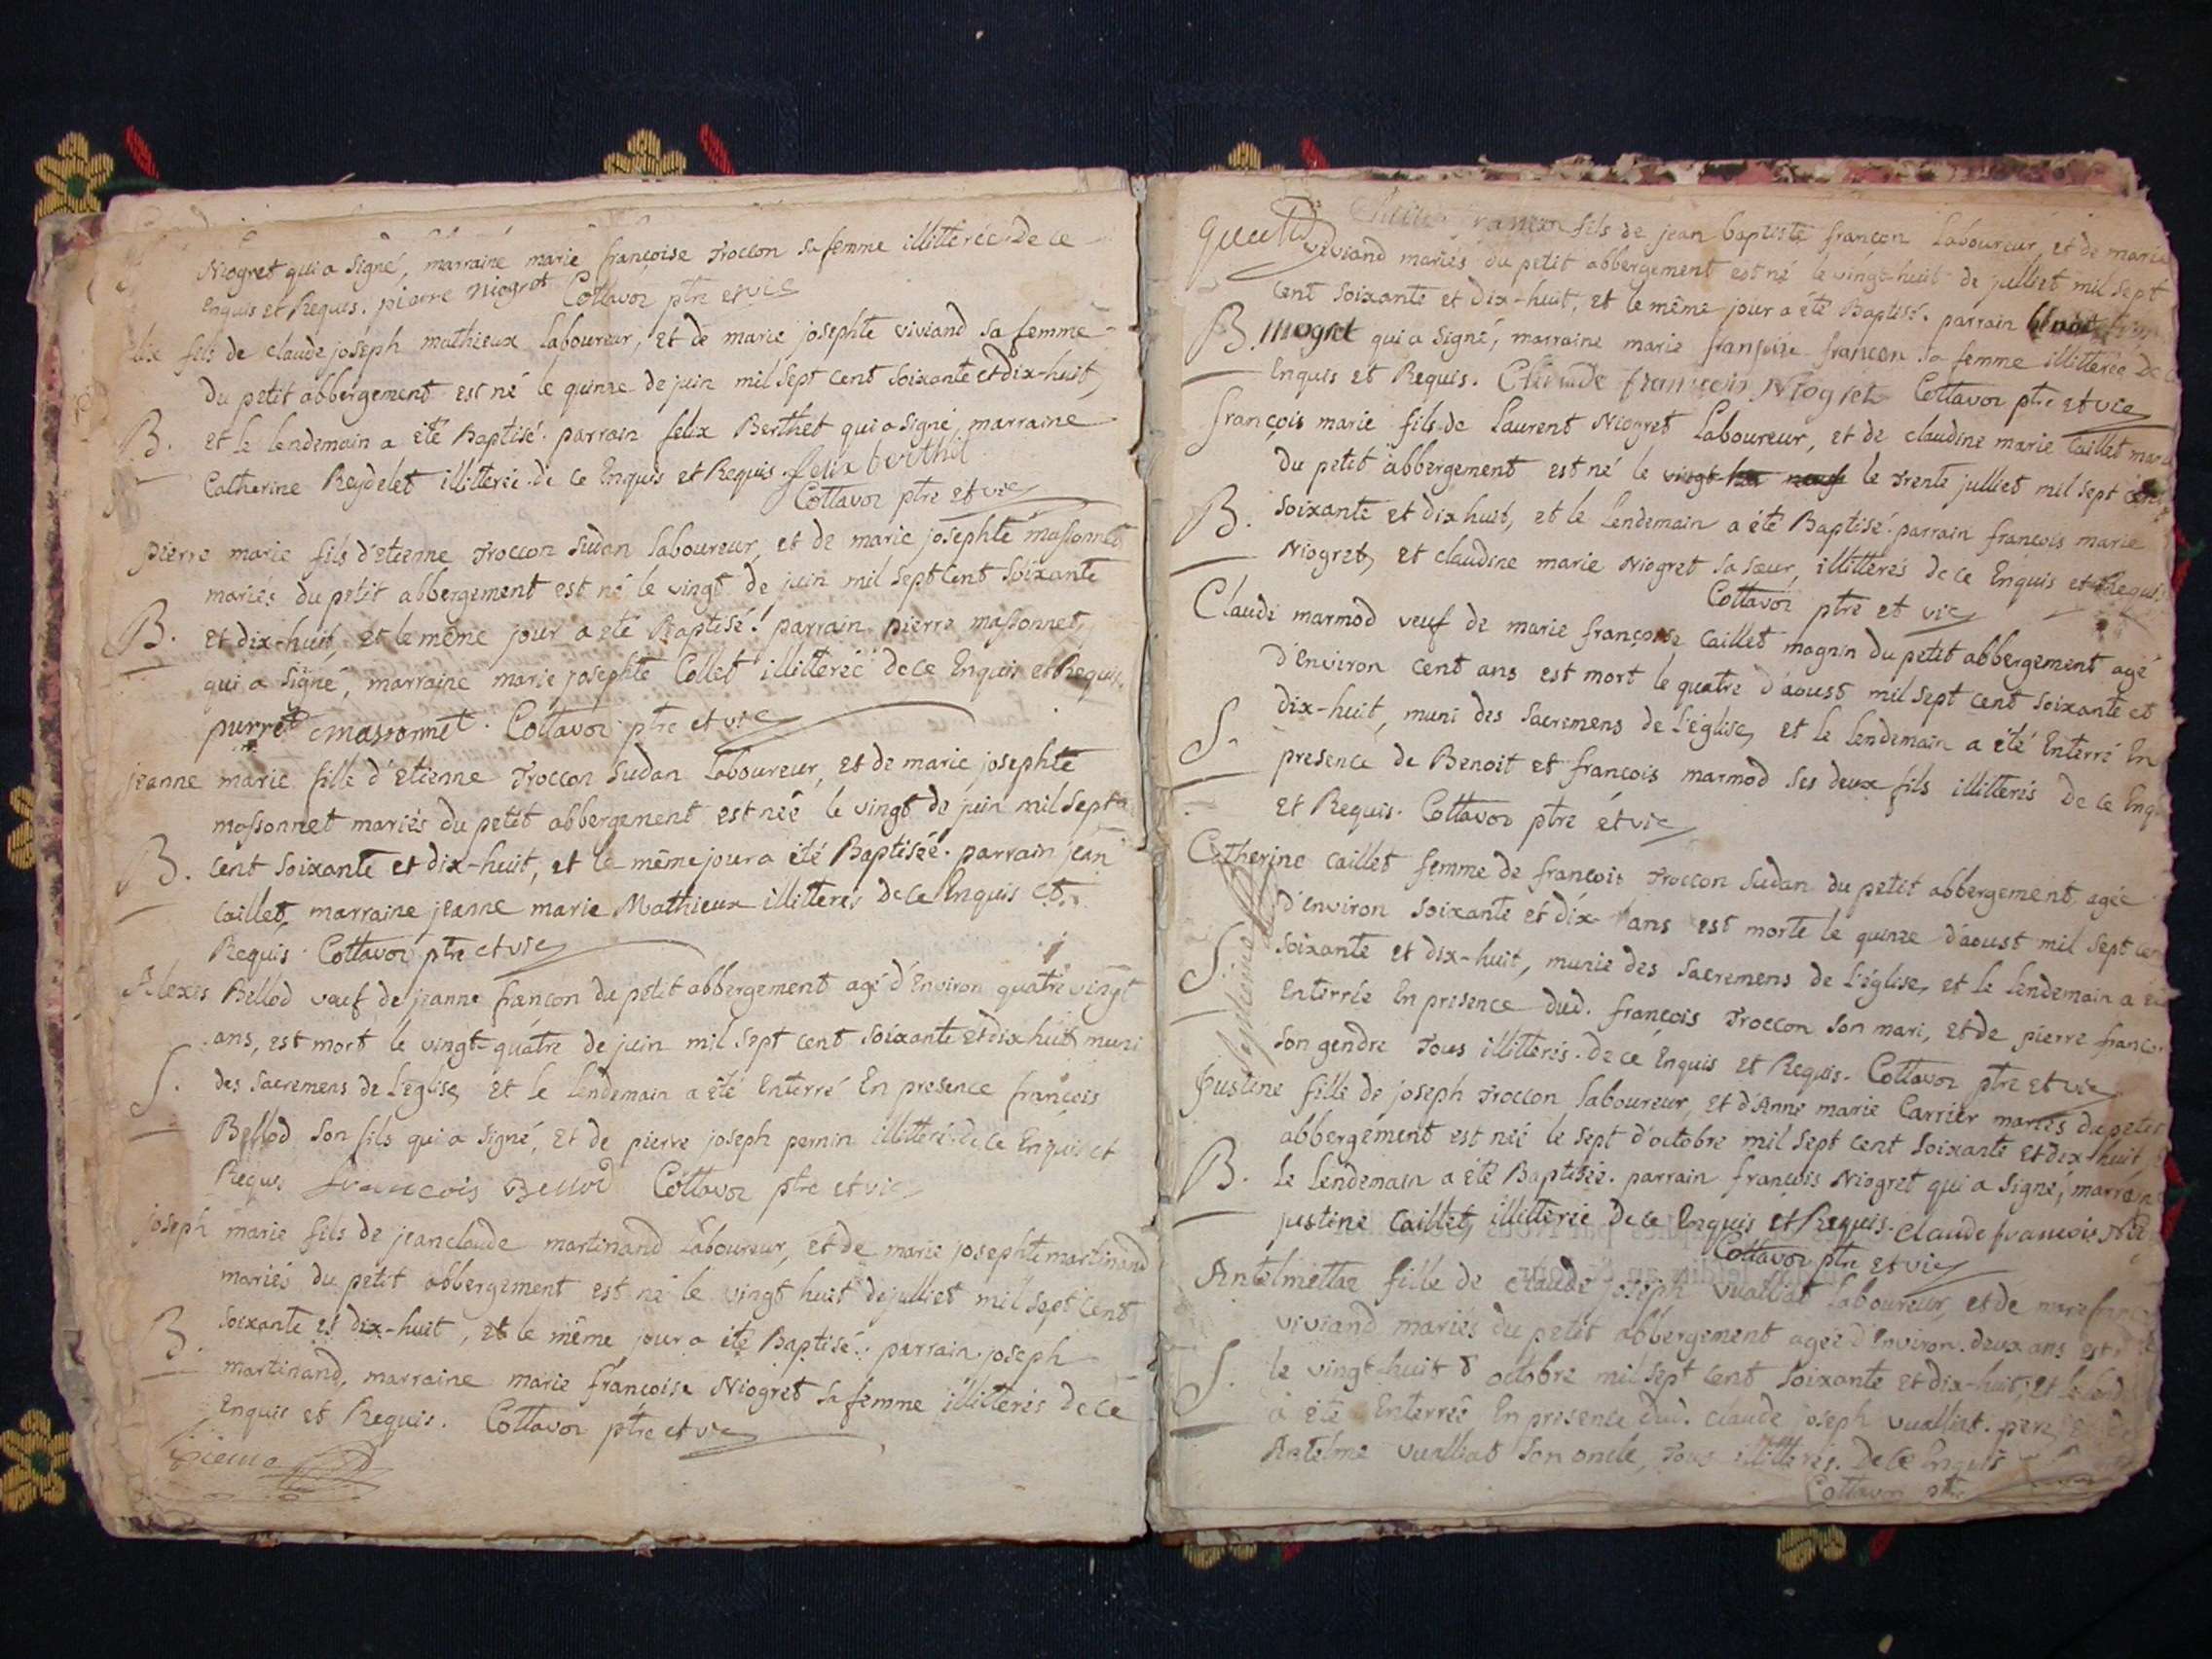 Niogret qui a signé, marraine marie françoise Troccon sa femme illitterée. de ce
Enquis et Requis. pierre niogret Cottavoz ptre et vic
fils de claude joseph mathieux laboureur, et de marie josephte viviand sa femme
du petit abbergement est né le quinze de juin mil sept cent soixante et dix-huit,
B. et le lendemain a été Baptisé. parrain felix Berthet qui a signé, marraine
Catherine Reydelet illitterée. de ce Enquis et Requis. felix berthet
Cottavoz ptre et vic
pierre marie fils d'etienne Troccon Sudan laboureur, et de marie josephte massonnet
mariés du petit abbergement est né le vingt de juin mil sept cent soixante
B. et dix-huit, et le même jour a été Baptisé. parrain pierre massonnet,
qui a signé, marraine marie josephte Collet illitterée de ce Enquis et Requis.
pierre massonnet. Cottavoz ptre et vic
jeanne marie fille d'etienne Troccon Sudan laboureur, et de marie josephte
massonnet mariés du petit abbergement est née le vingt de juin mil sept
B. cent soixante et dix-huit, et le même jour a été Baptisée. parrain jean
caillet, marraine jeanne marie Mathieux illitterés de ce Enquis et
Requis. Cottavoz ptre et vic
Alexis Bellod veuf de jeanne françon du petit abbergement agé d'environ quatre vingt
ans, est mort le vingt-quatre de juin mil sept cent soixante et dix huit muni
S. des sacremens de l'eglise, et le lendemain a été Enterré En presence françois
Bellod son fils qui a signé, et de pierre joseph pernin illitteré. de ce Enquis et
Requis francois Bellod Cottavoz ptre et vic
joseph marie fils de jean claude martinand laboureur, et de marie josephte martinand
mariés du petit abbergement est né le vingt huit de julliet mil sept cent
B. soixante et dix-huit, et le même jour a été Baptisé. parrain joseph
martinand, marraine marie françoise Niogret sa femme illitterés de ce
Enquis et Requis. Cottavoz ptre et vic
françon fils de jean baptiste françon laboureur, et de marie
viviand mariés du petit abbergement est né le vingt-huit de julliet mil sept
cent soixante et dix-huit, et le même jour a été Baptisé. parrain
B. niogret qui a signé, marraine marie françoise françon sa femme illitterée de ce
Enquis et Requis. Claude francois Niogret Cottavoz ptre et vic
françois marie fils de Laurent Niogret Laboureur, et de claudine marie Caillet mariés
du petit abbergement est né le vingt le trente julliet mil sept cent
B. soixante et dix huit, et le lendemain a été Baptisé. parrain françois marie
Niogret, et claudine marie Niogret sa sœur, illitterés de ce Enquis et Requis.
Cottavoz ptre et vic
Claude marmod veuf de marie françoise Caillet magnin du petit abbergement agé
d'Environ cent ans est mort le quatre d'aoust mil sept cent soixante et
S. dix-huit, muni des Sacremens de l'église, et le lendemain a été Enterré En
presence de Benoit et françois marmod ses deux fils illitterés de ce Enquis
et Requis. Cottavoz ptre et vic
Catherine Caillet femme de françois Troccon Sudan du petit abbergement, agée
d'environ soixante et dix ans est morte le quinze d'aoust mil sept cent
S. soixante et dix-huit, munie des sacremens de l'église, et le lendemain a été
Enterrée En presence dud. françois Troccon son mari, et de pierre françon
son gendre Tous illitterés. de ce Enquis et Requis. Cottavoz ptre et vic
Justine fille de joseph Troccon laboureur, et d'Anne marie Carrier mariés du petit
abbergement est née le sept d'octobre mil sept cent soixante et dix-huit,
B. le lendemain a été Baptisée. parrain françois Niogret qui a signé, marraine
justine Caillet, illitterée de ce Enquis et Requis. claude francois
Cottavoz ptre et vic
Antelmette fille de claude joseph vualliat laboureur, et de marie
viviand mariés du petit abbergement agée d'Environ deux ans est
S. le vingt-huit octobre mil sept cent soixante et dix-huit, et le
a été Enterrée En presence dud. claude joseph vualliat. pere,
Antelme vualliat son oncle, Tous illitterés. De ce Enquis
Cottavoz ptre